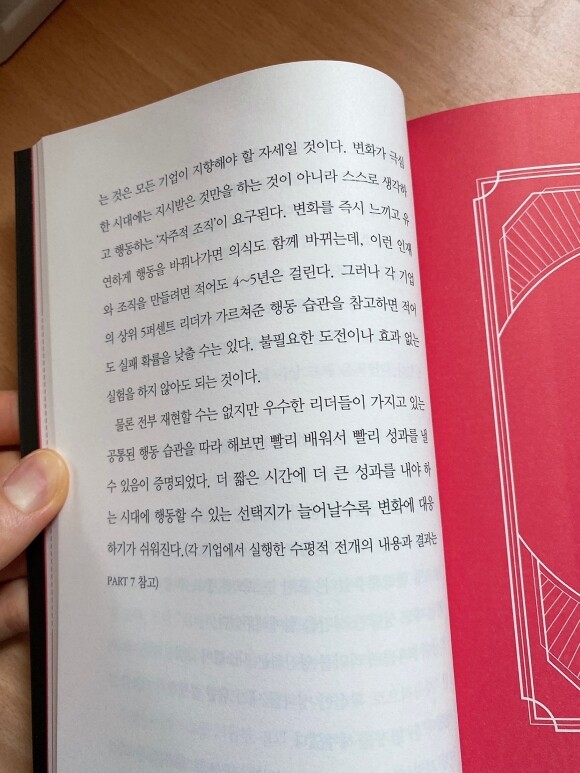 는 것은 모든 기업이 지향해야 할 자세일 것이다. 변화가 극심
한 시대에는 지시받은 것만을 하는 것이 아니라 스스로 생각하
고 행동하는 '자주적 조직'이 요구된다. 변화를 즉시 느끼고 유
연하게 행동을 바꿔나가면 의식도 함께 바뀌는데, 이런 인재
와 조직을 만들려면 적어도 4~5년은 걸린다. 그러나 각 기업
의 상위 5퍼센트 리더가 가르쳐준 행동 습관을 참고하면 적어
도 실패 확률을 낮출 수는 있다. 불필요한 도전이나 효과 없는
실험을 하지 않아도 되는 것이다.
물론 전부 재현할 수는 없지만 우수한 리더들이 가지고 있는
공통된 행동 습관을 따라 해보면 빨리 배워서 빨리 성과를 낼
수 있음이 증명되었다. 더 짧은 시간에 더 큰 성과를 내야 하
는 시대에 행동할 수 있는 선택지가 늘어날수록 변화에 대응
하기가 쉬워진다.(각 기업에서 실행한 수평적 전개의 내용과 결과는
PART 7 참고)